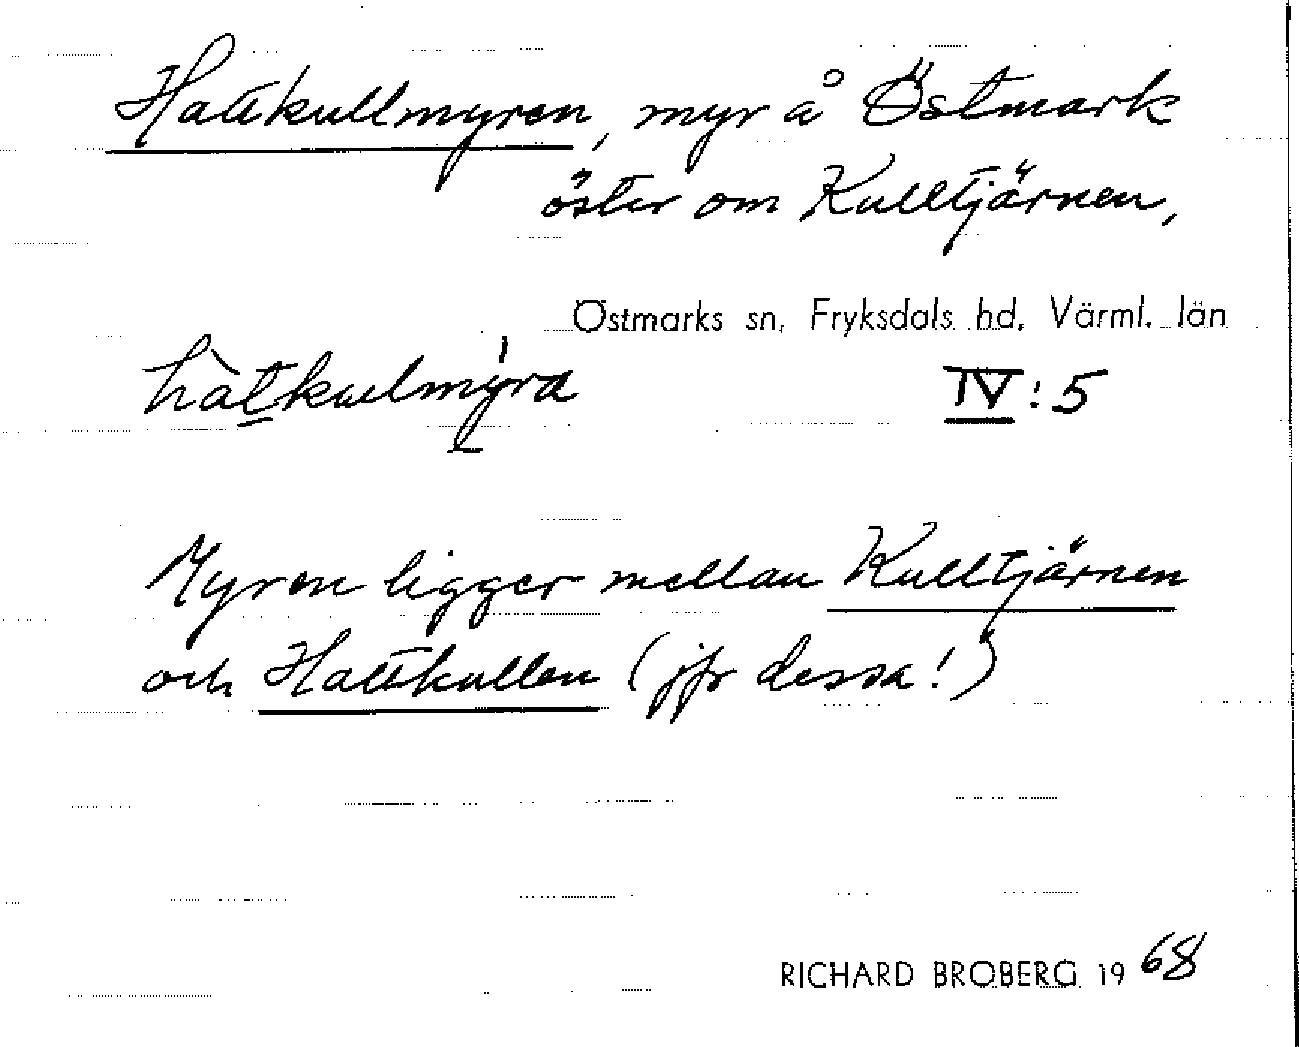 Hattkullmyren, myr å Östmark
öster om Kulltjärnen,
Östmarks sn, Fryksdals hd, Värml. län
hàtkulmýra IV:5
Myren ligger mellan Kulltjärnen
och Hattkullen (jfr dessa!)
RICHARD BROBERG 1968